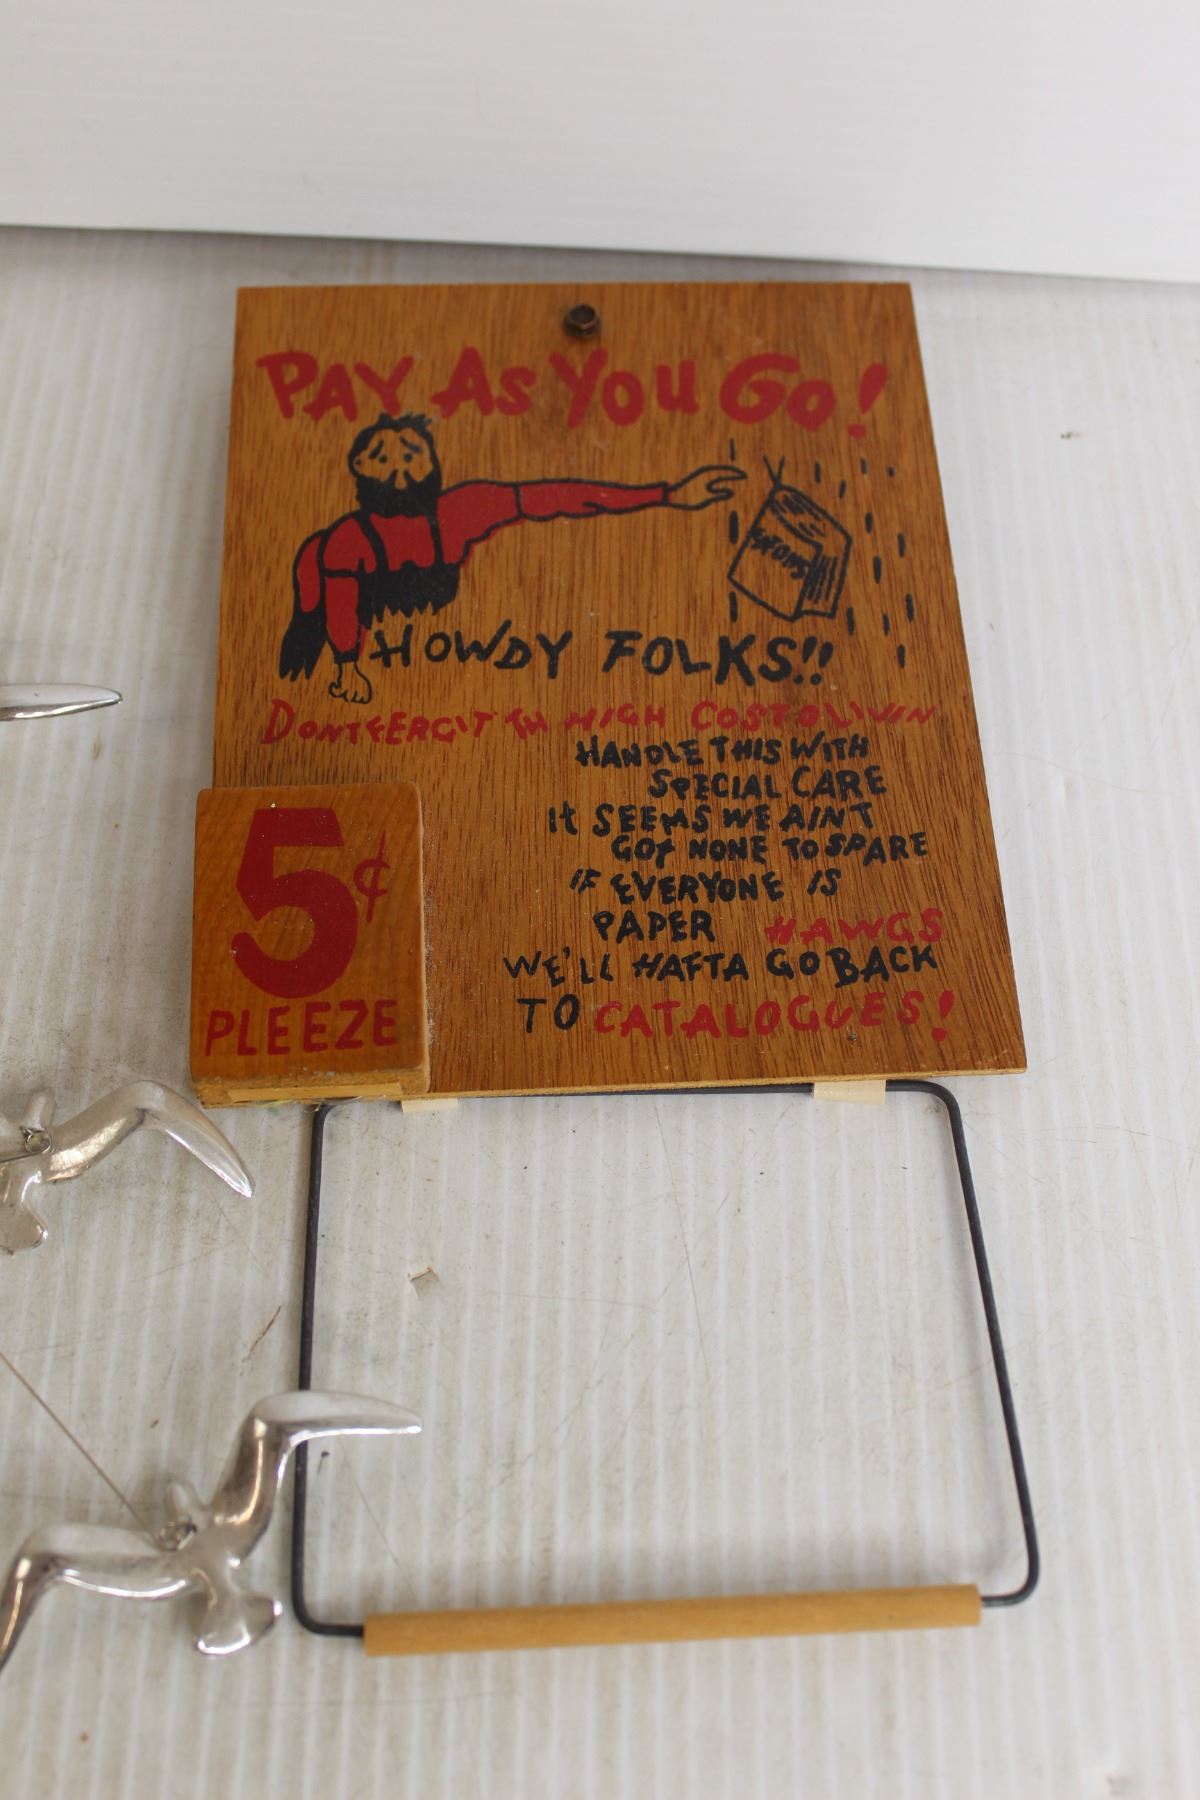 PAY AS YOU GO!
EATONS
HOWDY FOLKS!!
DONTFERGIT TH HIGH COSTOLIVIN
HANDLE THIS WITH
SPECIAL CARE
It SEEMS WE AINT
GOT NONE TO SPARE
IF EVERYONE IS
PAPER HAWGS
WE'LL HAFTA GO BACK
TO CATALOGUES!
5¢
PLEEZE